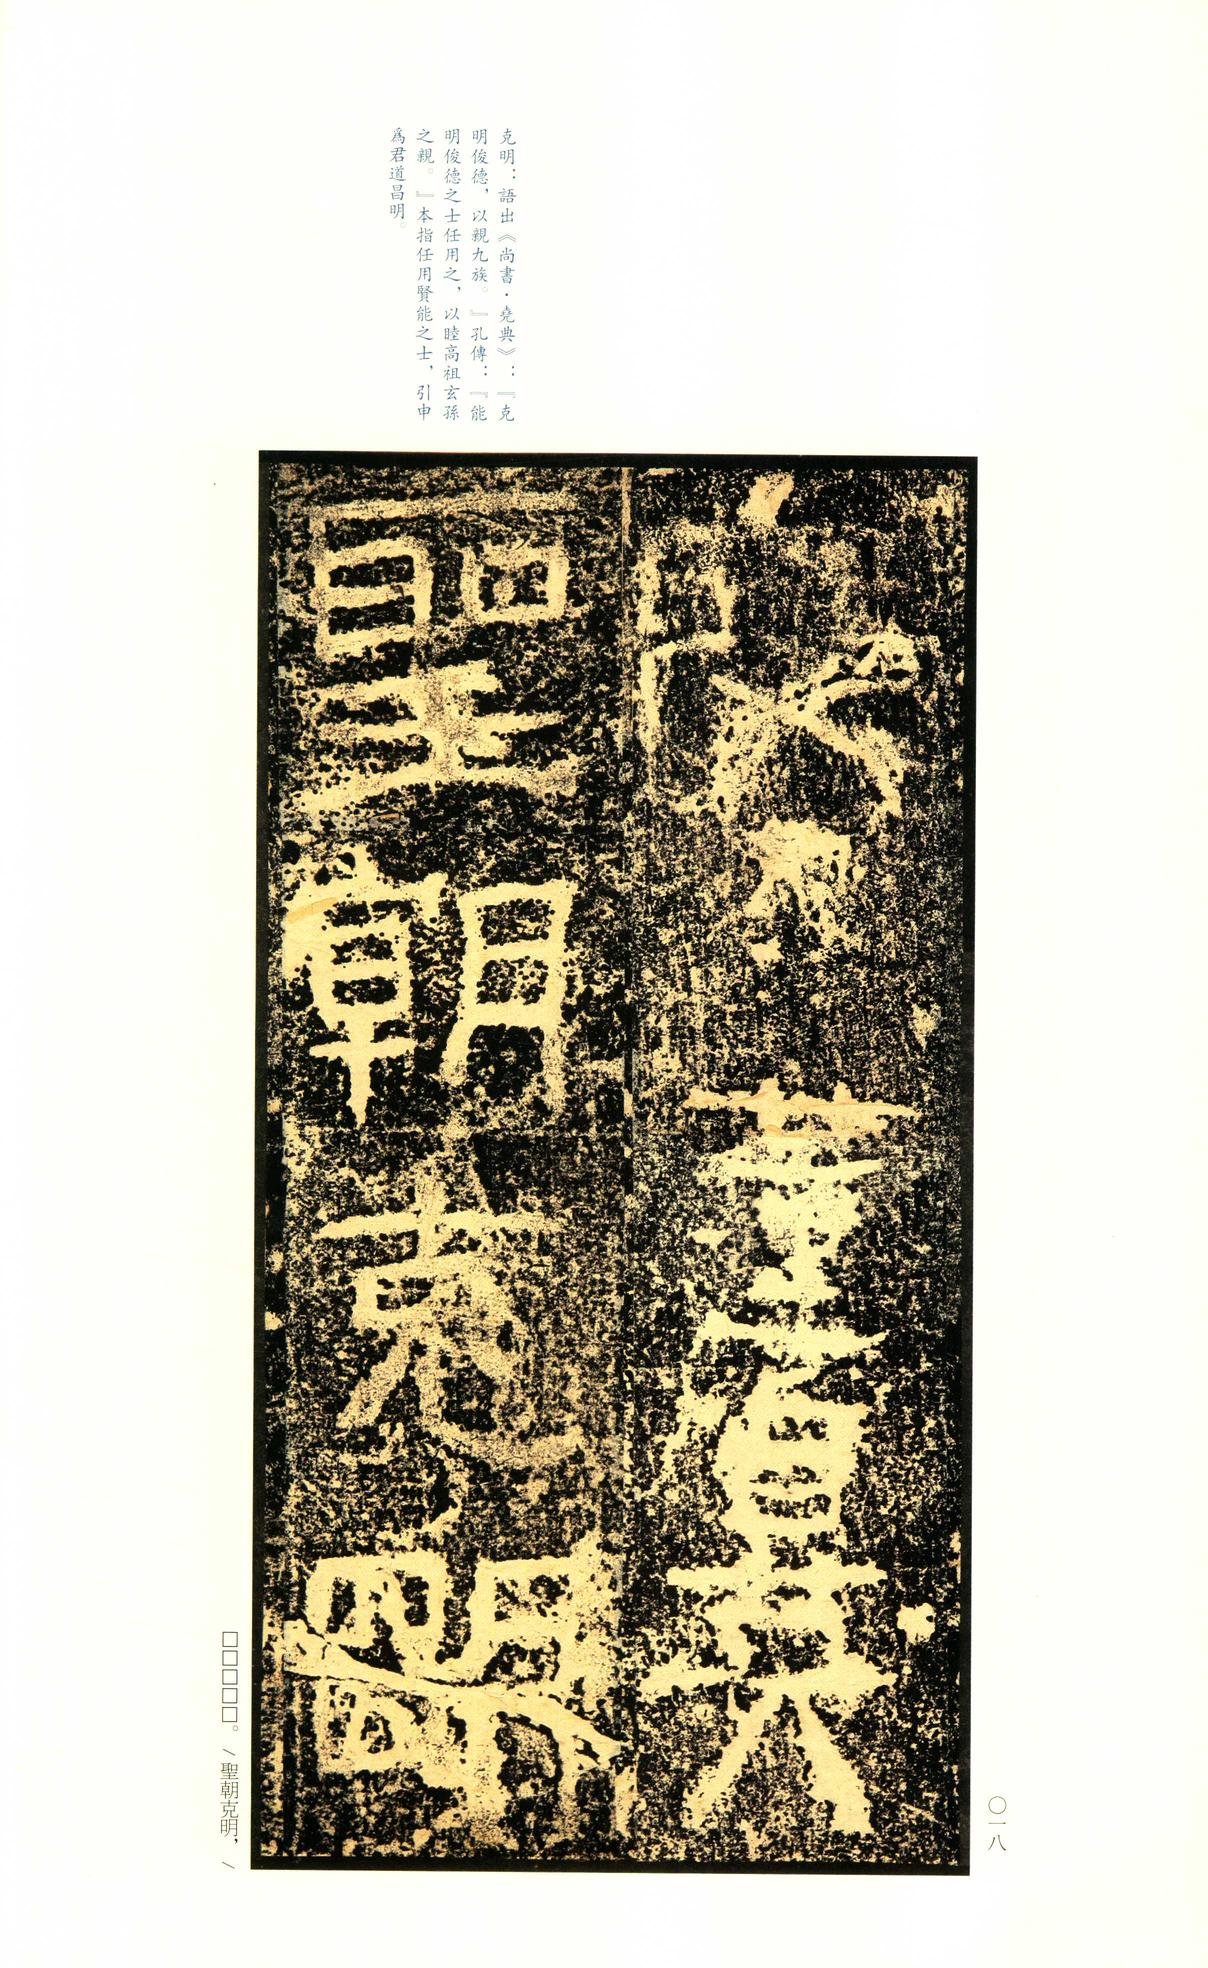 克明：語出《尚書·堯典》：『克
明俊德，以親九族。』孔傳：『能
明俊德之士任用之，以睦高祖玄孫
之親。』本指任用賢能之士，引申
爲君道昌明。
聖朝克明
□□□□□。/聖朝克明，/
〇一八